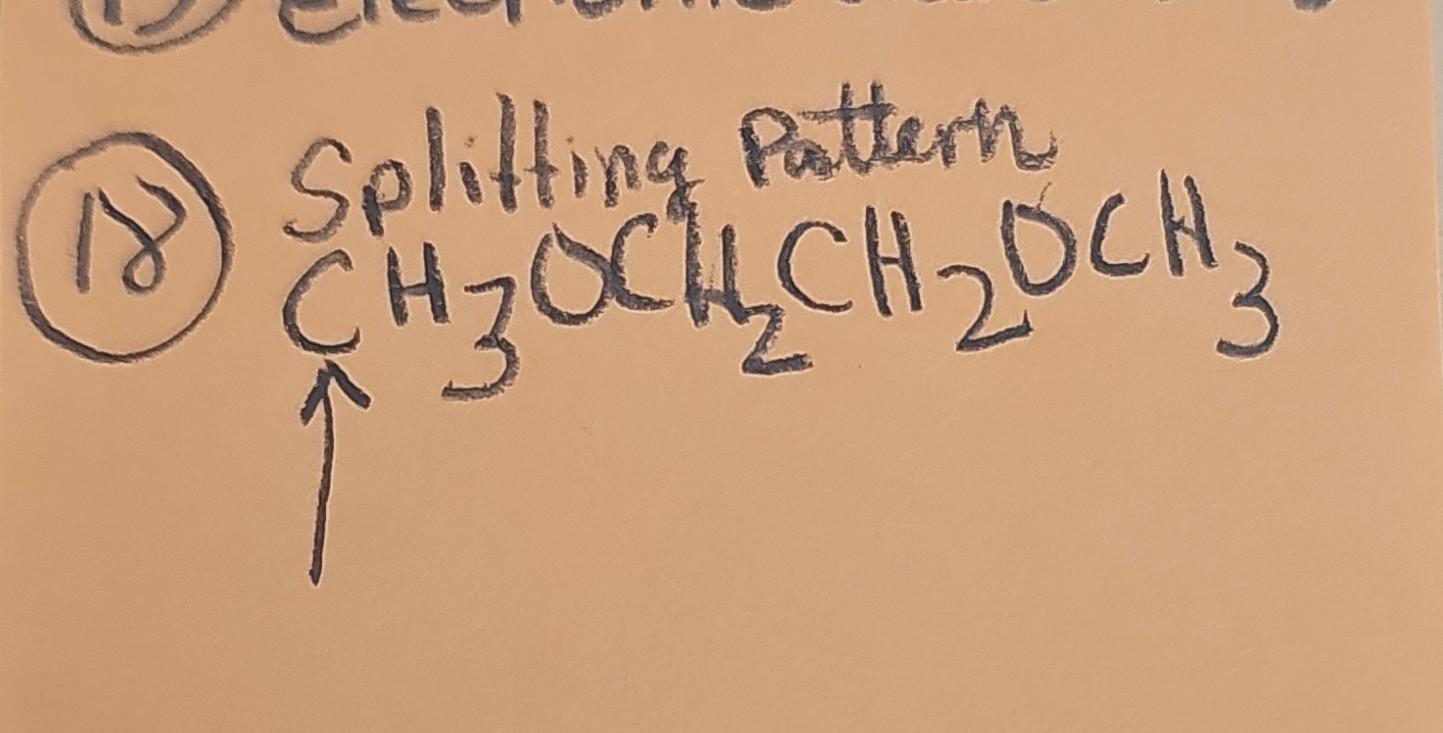 18 Splitting Pattern
CH3OCH2CH2OCH3